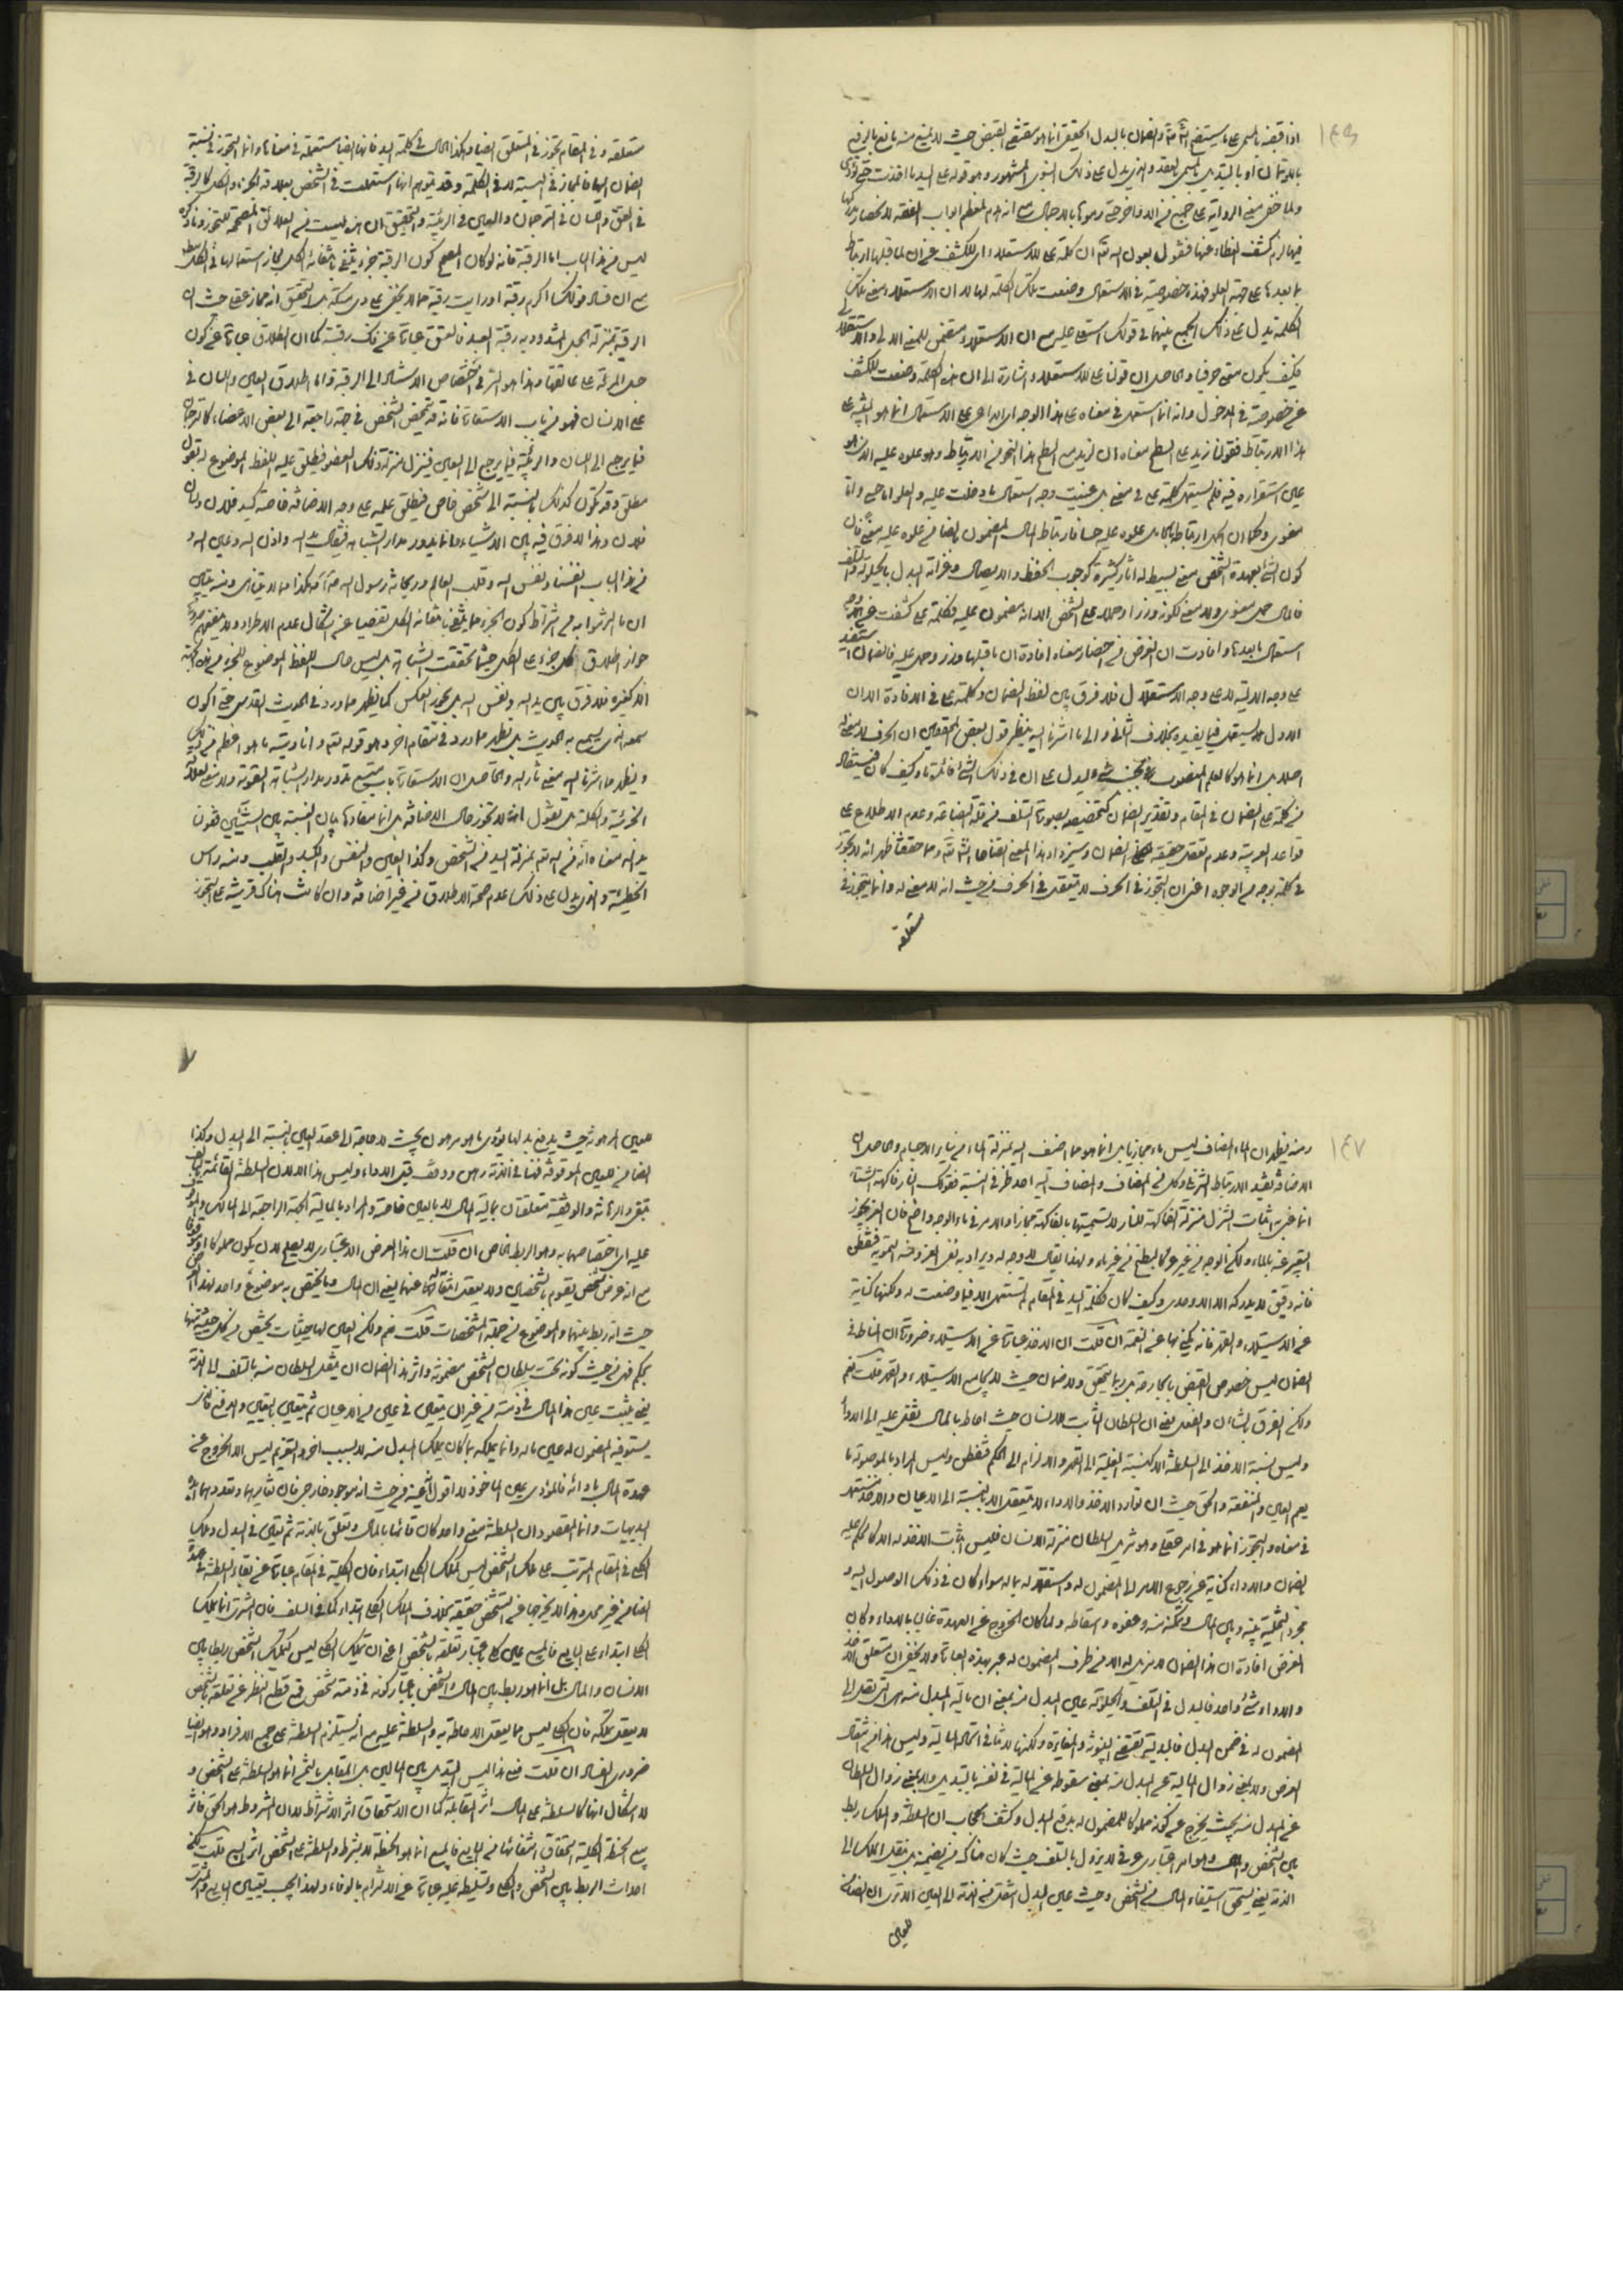 ١٤٦
اذا قبضه بالسوم على ما يستفتح
باللوتمان او بالتبديل بالمسمى بالعقد والذي يدل على ذلك النبوي المشهور وهو قوله على اليد ما اخذت حتى تؤدى
ولما خفى معنى الرواية على جميع من الاواخر حتى رموها بالاجمال مع انه ام لمعظم ابواب الفقه
فيها لزم كشف الغطاء عنها فنقول بعون الله تعالى ان كلمة على للاستعلاء اى للكشف عن ان لما قبلها ارتباط
بما بعدها على جهة العلو فهذه خصوصية في الاستعمال وضعت تلك الكلمة لها لا ان الاستعلاء معنى تلك
الكلمة يدل على ذلك الجمع بينهما في قولك استعلى عليه مع ان الاستعلاء متضمن للمعنى
فكيف يكون معنى حرفيا والحاصل ان قولنا على للاستعلاء اشارة الى ان هذه الكلمة وضعت للكشف
عن خصوصية في المدخول وانه انما استعمل في معناه على هذا الوجه اى الداعى على الاستعمال انما هو التنبيه على
هذا الارتباط فقولنا زيد على السطح معناه ان لزيد مع السطح هذا النحو من الارتباط وهو علوه عليه
على استقراره فيه فلم يستعمل كلمة على في معنى بل عينت وجه استعمال ما دخلت عليه والعلو اما حسى واما
معنوى وكما ان
كون الشئ بعهدة الشخص معنى بسيط له اثار كثيرة كوجوب الحفظ والايصال وغرامة البدل بالحيلولة والتلف
فالمال حمل معنوى ولا معنى لكونه وزرا وحملا على الشخص الا انه مضمون عليه فكلمة على كشفت عن
استعمال ما بعدها وافادت ان الغرض من احضار معناه افادة ان ما قبلها وزر وحمل عليه فالضمان
على وجه الالية لا على وجه الاستقلال فلا فرق بين لفظ الضمان وكلمة على في الافادة الا ان
الاول يستعمل فيما يفيده بخلاف الثانى والى ما اشرنا اليه ينظر قول بعض المحققين ان الحرف لا معنى له
اصلا بل انما هو كالعلم المنصوب بجنب شئ ليدل على ان في ذلك الشئ فائدة ما وكيف كان
من كلمة على الضمان في المقام وتقدير الضمان كتخصيصه بصورة التلف من قلة البضاعة وعدم الاطلاع على
قواعد العربية وعدم تعقل حقيقة الضمان وسيزداد هذا المعنى اتضاحا انشاء الله تعالى ومما حققنا ظهر انه لا تجوز
في كلمة بوجه من الوجوه اعنى ان التجوز في الحرف لا يتعقل في الحرف من حيث انه لا معنى له وانما يتجوز في
متعلقه
متعلقه وفي المقام تجوز في المتعلق ايضا وكذا الحال في كلمة اليد فانها ايضا مستعملة في معناها وانما التجوز في نسبة
الضمان اليها فالمجاز في النسبة لا في الكلمة وقد يتوهم انها استعملت في الشخص بعلاقة الجزء والكل كالرقبة
في العتق واللسان في الترجمان والعين في الربيئة والتحقيق ان هذه ليست من العلائق المصححة للتجوز وما ذكره
ليس من هذا الباب اما الرقبة فانه لو كان المصحح كون الرقبة جزء ينتفى بانتفائه الكل لجاز استعمالها في الكل
مع ان فساد قولك اكرم رقبة او رايت رقبة مما لا يخفى على ذى مسكة بل التحقيق انه مجاز عقلى حيث ان
الرقبة بمنزلة الحبل المشدود به رقبة العبد فالعتق عبارة عن فك رقبته كما ان الطلاق عبارة عن كون
حبل المرئة على عاتقها وهذا هو السر في اختصاص الاسناد الى الرقبة واما اطلاق العين واللسان في
على الانسان فهو من باب الاستعارة فانه قد يتمحض الشخص في جهة راجعة الى بعض الاعضاء كالترجمان
فيما يرجع الى اللسان والربيئة فيما يرجع الى العين فينزل منزلة ذلك العضو فيطلق عليه اللفظ الموضوع له بقول
مطلق وقد يكون كذلك بالنسبة الى شخص خاص فيطلق عليه على وجه الاضافة خاصة كيد فلان ولسان
فلان وهذا لا فرق فيه بين الاشياء وانما يدور مدار التشابه فيقال يد الله واذن الله وعين الله و
من هذا الباب انفسنا ونفس الله وقلب العالم وريحانة رسول الله وهكذا مما لا يتناهى ومنه يتبين
ان ما التزموا به من اشتراط كون الجزء مما ينتفى بانتفائه الكل تفصيا عن اشكال عدم الاطراد ولا ينفعهم
جواز اطلاق كل جزء على الكل حيثما تحققت الشباهة بل ليس حال اللفظ الموضوع للجزء من هذه الجهة
الا كغيره فلا فرق بين يد الله ونفس الله بل يجوز العكس كما يظهر مما ورد في الحديث القدسى حتى اكون
سمعه الذى يسمع به الحديث بل يظهر مما ورد في مقام اخر وهو قوله تعالى وانا ديته ما هو اعظم من ذلك
ويظهر مما اشرنا اليه معنى ثار الله والحاصل ان الاستعارة باب متسع تدور مدار الشباهة التامة ولا معنى لعلاقة
الجزئية والكلية بل نقول انه لا تجوز حال الاضافة بل انما مفادها بيان النسبة بين الشيئين فقولنا
يد الله معناه انه من الله تعالى بمنزلة اليد من الشخص وكذا العين والنفس والكبد والقلب ومنه راس
الخطيئة والذى يدل على ذلك عدم صحة الاطلاق من غير اضافة وان كانت هناك قرينة على التجوز
١٤٧
ومنه يظهر ان الماء المضاف ليس ماء مجازيا بل انما هو مما اضيف اليه بمنزلة الماء من سائر الاجسام والحاصل ان
الاضافة تفيد الارتباط التنزيلى وكل من المضاف والمضاف اليه احد طرفى النسبة فقولك النار فاكهة الشتاء
انما عنى به اثبات التنزل منزلة الفاكهة للنار لا تسميتها بالفاكهة مجازا والامر في ماء الوجه واضح فان العز يجوز
التعبير عنه بالماء ولكن الوجه من غير عز كالبطيخ من غير ماء ولهذا يقال لا وجه له ويراد به نفى العز فتفطن
فانه دقيق لا يدركه الا الاوحدى وكيف كان فكلمة اليد في المقام لم تستعمل الا فيما وضعت له ولكنها كناية
عن الاستيلاء والقهر فانه يكنى بها عن النعمة ان قلت ان الاخذ عبارة عن الاستيلاء وضرورة ان المناط في
الضمان ليس خصوص القبض بالجارحة بل ربما يتحقق ولا ضمان حيث لا يجامع الاستيلاء والقهر قلت نعم
ولكن الفرق بالشأن والفعل يعنى ان السلطان الثابت للانسان حيث احاط بالمال ثقل عليه الى الاداء
وليس نسبة الاخذ الى السلطنة الا كنسبة الغلبة الى القهر والالزام الى الحكم فتفطن وليس المراد بالموصولة ما
يعم العين والمنفعة والحق حيث ان توارد الاخذ والاداء لا يتعقل الا بالنسبة الى الاعيان والاخذ مستعمل
في معناه والتجوز انما هو في امر عقلى وهو تنزيل السلطان منزلة الانسان فليس اثبات الاخذ له الا كالحكم عليه
بالضمان والاداء كناية عن رجوع الامر الى المضمون له واستقلاله بماله سواء كان في ذلك الوصول اليه و
مجرد التخلية بينه وبين المال وتمكنه منه وعفوه واسقاطه ولما كان الخروج عن العهدة غالبا بالاداء وكان
الغرض افادة ان هذا الضمان لا مزيل له الا من طرف المضمون له عبر بهذه العبارة ولا يخفى ان متعلق الاخذ
والاداء شئ واحد فالبدل في التلف والحيلولة عين المبدل منه بمعنى ان مالية المبدل منه هى التى تصل الى
المضمون له في ضمن البدل فالبدلية تقتضى البينونة والمغايرة ولكنها لا تنافى اتحاد المالية وليس هذا من انتقال
العرض ولا بمعنى زوال المالية عن المبدل منه بمعنى سقوطه عن المالية في نفسه بالتبديل ولا بمعنى زوال السلطان
عن المبدل منه بحيث يخرج عن كونه مملوكا للمضمون له بدفع البدل وكشف الحجاب ان السلطنة والملك ربط
بين الشخص والمال وهو امر اعتبارى عرفى لا يزول بالتلف حيث كان هناك من يضمنه بل ينتقل الملك الى
الذمة يعنى يستحق استيفاء المال من الشخص وحيث عين البدل انتقل من الذمة الى العين الا ترى ان الضمان
للعين
للعين المرهونة حيث يدفع بدلها يؤدى ما هو مرهون بحيث لا حاجة الى عقد العين بالنسبة الى البدل وكذا
الضامن للعين الموقوفة فما في الذمة رهن ووقف قبل الاداء وليس هذا الا لان السلطنة القائمة بالتالف
تبقى والرهانة والوثيقة متعلقتان بمالية المال لا بالعين خاصة والمراد بالمالية الجهة الراجعة الى المالك والموقوف
عليه اى اختصاصها به وهو الربط الخاص ان قلت ان هذا العرض الاعتبارى لا يصلح لان يكون مملوكا او موقوفا
مع انه عرض شخصى يقوم بالشخصين ولا يعقل انتقالها عنهما يعنى ان المال وما يختص به موضوع واحد لهذا العرض
حيث انه ربط بينهما والموضوع من جملة المشخصات قلت نعم ولكن العين لها حيثيات يختص كل حيثية منها
بحكم فهى من حيث كونه تحت سلطان الشخص مضمونة واثر هذا الضمان ان ينتقل السلطان منه بالتلف الى الذمة
يعنى يثبت عين هذا المال في ذمته من غير ان يتعين في عين من الاعيان ثم يتعين بالتعيين والدفع فالذى
يستوفيه المضمون له عين ماله وانما يملكه بما كان يملك المبدل منه لا بسبب اخر والتغريم ليس الا الخروج عن
عهدة المال بادائه فالمؤدى عين الماخوذ لا اقول انه عينه من حيث انه موجود خارجى فان تغايرهما وتعددهما من
البديهيات وانما المقصود ان السلطنة معنى واحد كان قائما بالمال وتعلق بالذمة ثم تعين في البدل وملك
الكلى في المقام المترتب على ملك الشخص ليس كملك الكلى ابتداء فان الكلية في المقام عبارة عن بقاء السلطنة في عهدة
الضامن من غير محل وهذا لا يخرجها عن التشخص حقيقة بخلاف الملك الكلى ابتداء كما في السلف فان المشترى انما يملك
الكلى ابتداء على البايع فالمبيع عين كلى باعتبار تعلقه بالشخص اعنى ان تمليك الكلى ليس كتمليك الشخص ربطا بين
الانسان والمال بل انما هو ربط بين المال والشخص باعتبار كونه في ذمة شخص فمع قطع النظر عن تعلقه بالشخص
لا يعقل تملكه فان الكلى ليس مما يعقل الاحاطة به والسلطنة عليه مع انه يستلزم السلطنة على جميع الافراد وهو ايضا
ضرورى الفساد ان قلت فعلى هذا ليس التبديل بين المالين بل المقابل بالثمن انما هو السلطنة على الشخص و
لا اشكال انها كالسلطنة على المال اثر المقابلة كما ان الاستحقاق اثر الاشتراط لا ان المشروط هو الحق فاثر
بيع الحنطة الكلية استحقاق اقتضائها من البايع فالمبيع انما هو الحنطة لا بشرط والسلطنة على الشخص اثر البيع قلت لكنه
احداث الربط بين الشخص والكلى وتسليطه عليه عبارة عن الالتزام بالوفاء ولهذا يجب تعيين البايع والمشترى